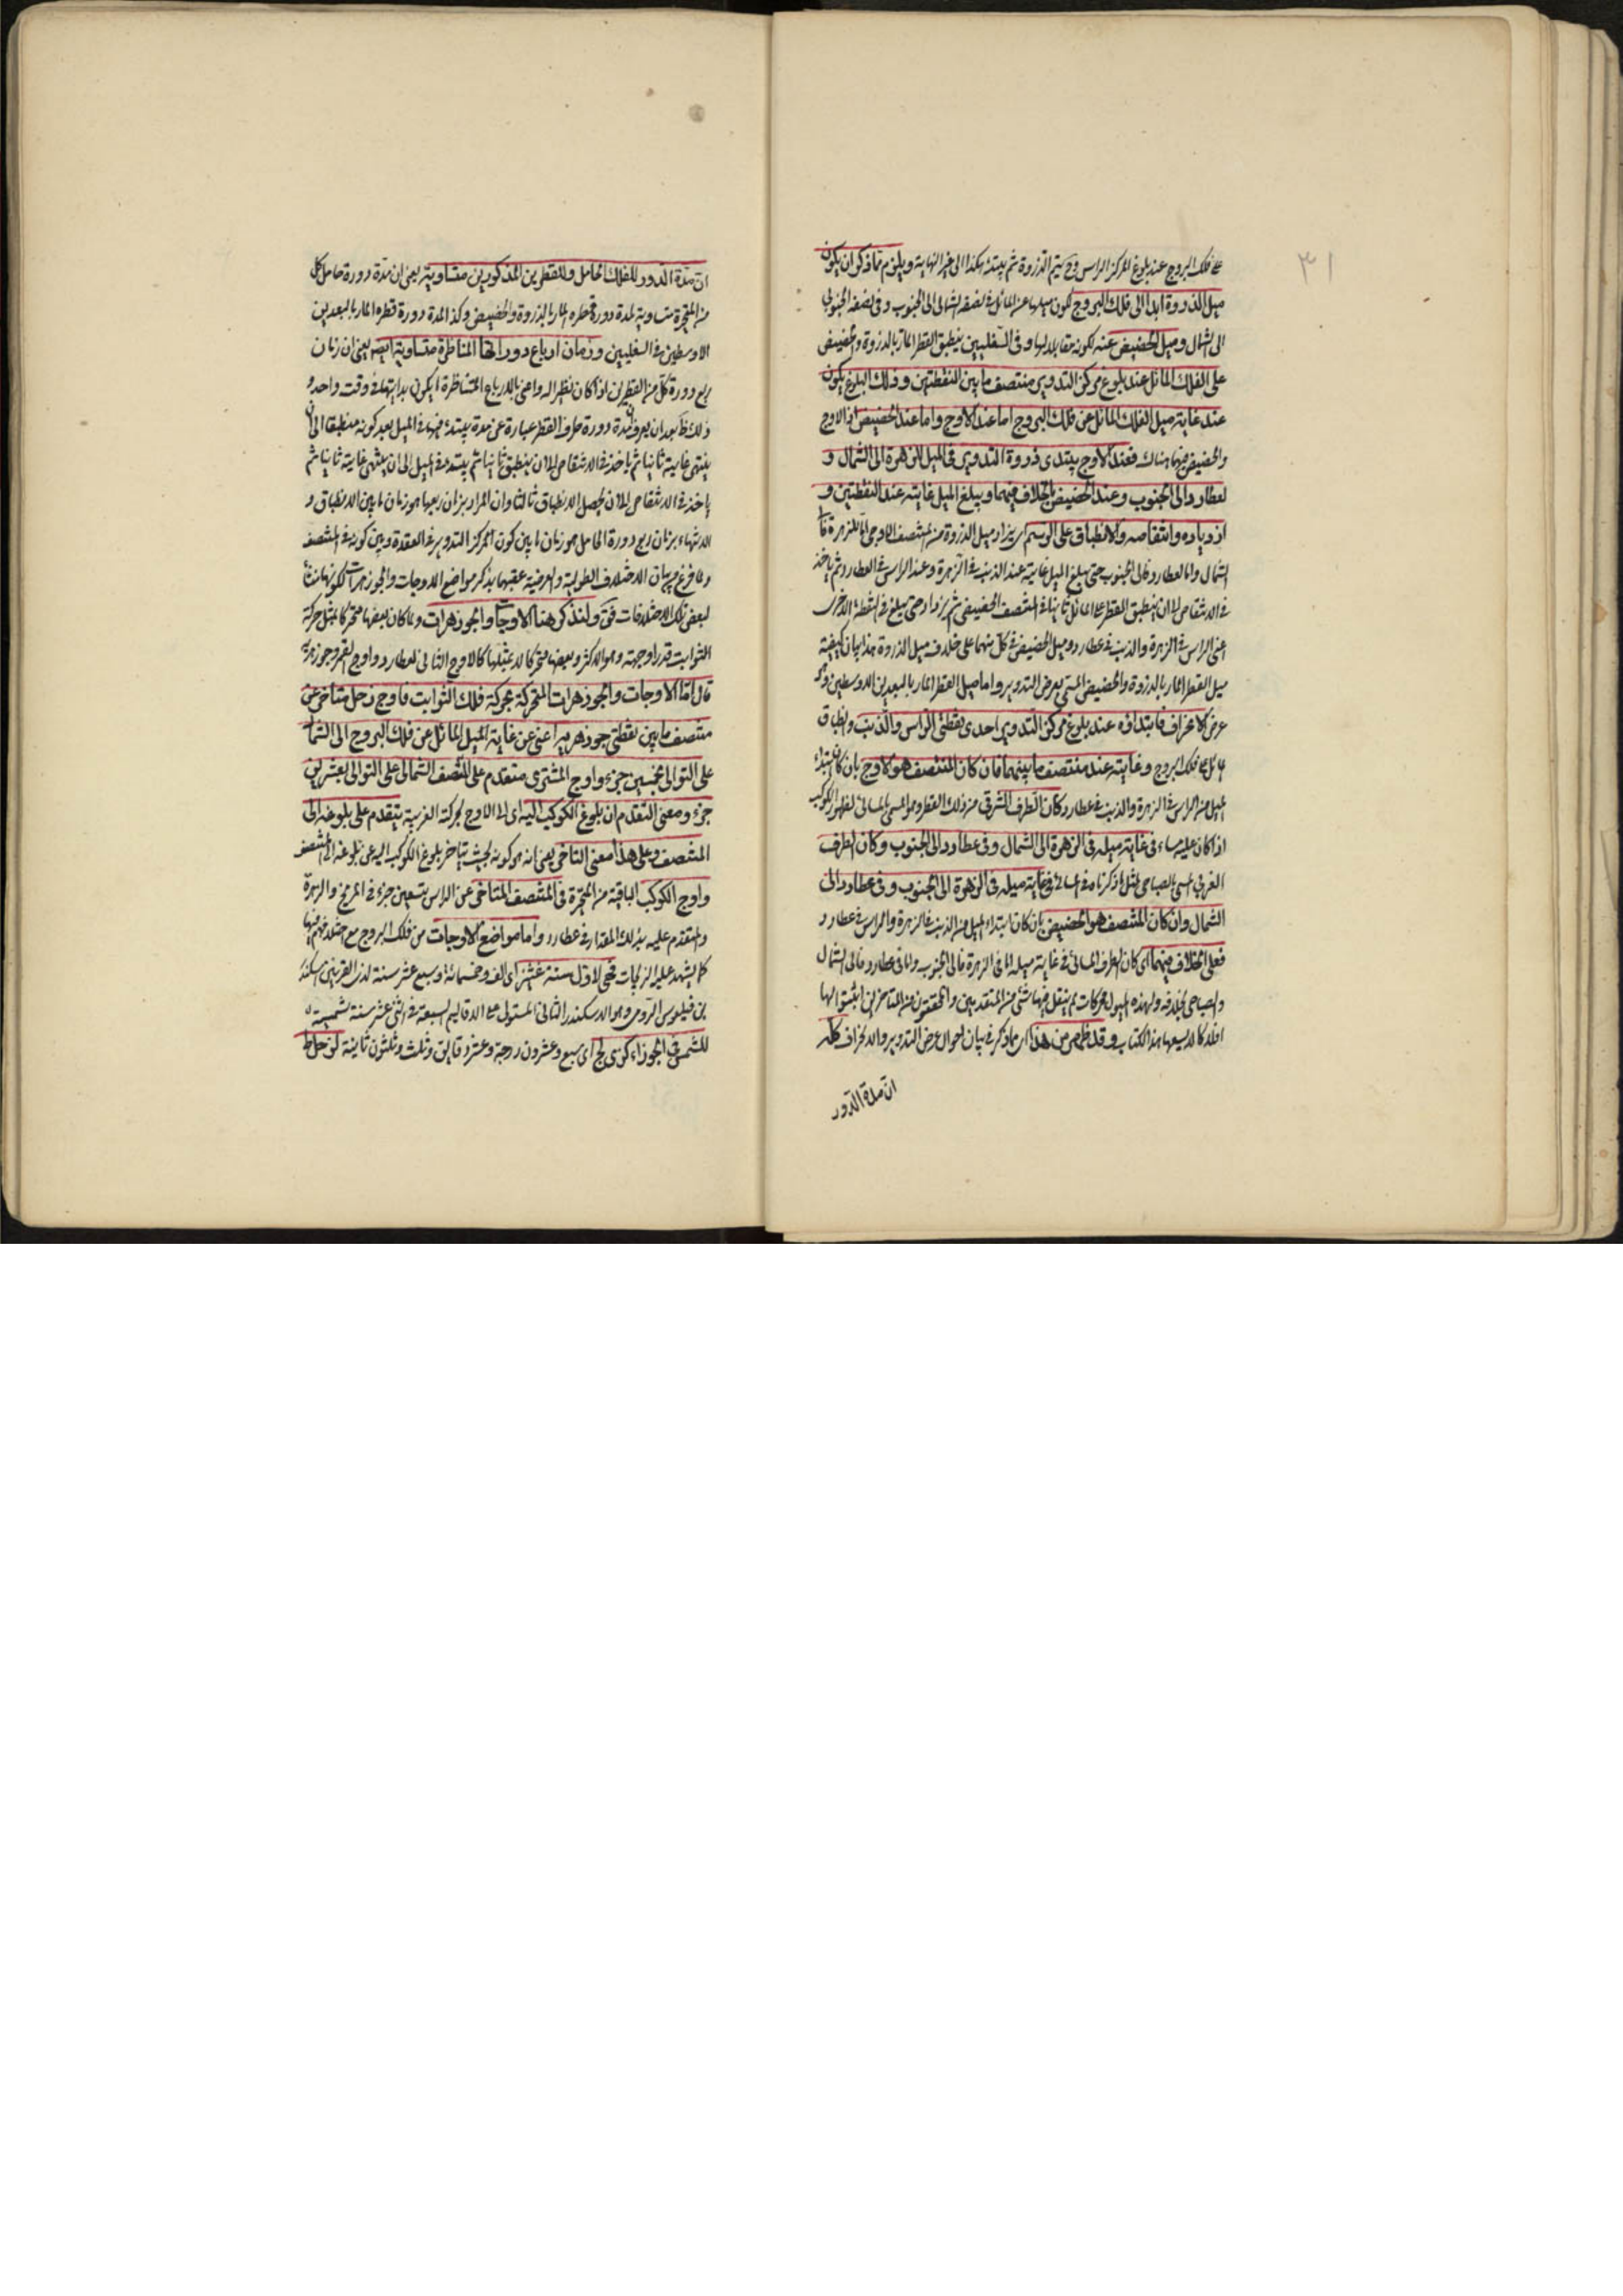 ٣١
على فلك البروج عند بلوغ المركز الراس وح يتم الدروة ثم يبتدئ هكذا الى غير النهاية ويلزم مما ذكر ان يكون
ميل الذروة ابدا الى فلك البروج لكون ميلها عن المائل في نصفه الشمالى الى الجنوب وفى نصفه الجنوبى
الى الشمال وميل الحضيض عنه لكونه مقابلا لها وفى السفليين ينطبق القطر المار بالذروة والحضيض
على الفلك المائل عند بلوغ مركز التدوير منتصف ما بين النقطتين وذلك البلوغ يكون
عند غاية ميل الفلك المائل عن فلك البروج اما عند الاوج واما عند الحضيض اذ الاوج
والحضيض فيهما هناك فعند الاوج يبتدى ذروة التدوير فى الميل للزهرة الى الشمال و
لعطارد الى الجنوب وعند الحضيض بالخلاف فيهما ويبلغ الميل غايته عند النقطتين و
ازدياده وانتقاصه والانطباق على الرسم اى يزداد ميل الذروة من المنتصف الاوجى اما للزهرة فالى
الشمال واما لعطارد فالى الجنوب حتى يبلغ الميل غايته عند الذنب فى الزهرة وعند الراس فى العطارد ثم ياخذ
فى الانتقاص الى ان ينطبق القطر على المائل ثانيا فى المنتصف الحضيضى ثم يزداد حتى يبلغ فى النقطة الاخرى
اعنى الراس فى الزهرة والذنب فى عطارد وميل الحضيض فى كل منهما على خلاف ميل الذروة هذا بيان كيفية
ميل القطر المار بالذروة والحضيض المسمى بعرض التدوير واما ميل القطر المار بالبعدين الاوسطين وهو
عرض الانحراف فابتداؤه عند بلوغ مركز التدوير احدى نقطتى الراس والذنب وانطباق
المائل على فلك البروج وغايته عند منتصف ما بينهما فان كان المنتصف هو الاوج بان كان ابتداء
الميل من الراس فى الزهرة والذنب فى عطارد وكان الطرف الشرقى من ذلك القطر وهو المسمى بالمسائى لظهور الكوكب
اذا كان عليه مساء فى غاية ميله فى الزهرة الى الشمال وفى عطارد الى الجنوب وكان الطرف
الغربى المسمى بالصباحى لمثل ما ذكرنا فى المسائى فى غاية ميله فى الزهرة الى الجنوب وفى عطارد الى
الشمال وان كان المنتصف هو الحضيض بان كان ابتداء الميل من الذنب فى الزهرة والراس فى عطارد
فعلى الخلاف فيهما اى كان الطرف المسائى فى غاية ميله اما فى الزهرة فالى الجنوب واما فى عطارد فالى الشمال
والصباحى بخلافه ولهذه الميول محركات لم ينقل فيها شئ من المتقدمين والمحققون من المتاخرين اثبتوا لها
افلاكا لا يسعها هذا الكتاب وقد ظهر من هذا اى مما ذكر فى بيان احوال عرض التدوير والانحراف كله
ان مدة الدور
ان مدة الدور للفلك الحامل وللقطرين المذكورين متساوية يعنى ان مدة دورة حامل كل
من المتحيرة متساوية لمدة دورة قطره المار بالذروة والحضيض وكذا لمدة دورة قطره المار بالبعدين
الاوسطين فى السفليين وزمان ارباع دوراتها المتناظرة متساوية ايضا يعنى ان زمان
ربع دورة كل من القطرين اذا كان نظيرا له واعنى بالارباع المتناظرة ما يكون بدايتها فى وقت واحد و
ذلك ظ بعد ان يعرف ان مدة دورة طرف القطر عبارة عن مدة يبتدئ فيها فى الميل بعد كونه منطبقا الى ان
ينتهى غايته ثانيا ثم ياخذ فى الانتقاص الى ان ينطبق ثانيا ثم يبتدئ فى الميل الى ان ينتهى غايته ثانيا ثم
ياخذ فى الانتقاص الى ان يحصل الانطباق ثالثا وان المراد بزمان ربعها هو زمان ما بين الانطباق و
الانتهاء بزمان ربع دورة الحامل هو زمان ما بين كون المركز التدوير فى العقدة وبين كونه فى المنتصف
ولما فرغ من بيان الاختلاف الطولية والعرضية عقبهما بذكر مواضع الاوجات والجوزهرات لكونها منشأ
لبعض تلك الاختلافات فى ولنذكر هنا الاوجات والجوزهرات ولما كان بعضها متحركا بمثل حركة
الثوابت قدرا وجهة وهو الاكثر وبعضها متحركا لا بمثلها كالاوج الثانى لعطارد واوج القمر وجوزهريه
قال اما الاوجات والجوزهرات المتحركة بحركة فلك الثوابت فاوج زحل متاخر عن
منتصف ما بين نقطتى جوزهريه اعنى عن غاية الميل المائل عن فلك البروج الى الشمال
على التوالى بخمسين جزءا واوج المشترى متقدم على المنتصف الشمالى على التوالى بعشرين
جزء ومعنى التقدم ان بلوغ الكوكب اليه اى الى الاوج بحركته الغربية يتقدم على بلوغه الى
المنتصف وعلى هذا معنى التاخر يعنى انه هو كونه بحيث يتاخر بلوغ الكوكب اليه عن بلوغه الى المنتصف
واوج الكوكب الباقية من المتحيرة فى المنتصف المتاخر عن الراس بتسعين جزء فى المريخ والزهرة
والمتقدم عليه بذلك المقدار فى عطارد واما مواضع الاوجات من فلك البروج مع اختلافهم فيها
كما يشهد عليه الزيجات فهى لاول سنة غشيز اى الف وخمسمائة وسبع عشر سنة لذى القرنين اسكندر
بن فيلقوس الرومى وهو الاسكندر الثانى المستولى على الاقاليم السبعة فى اثنى عشر سنة شمسية
للشمس فى الجوزاء كوى لج اى سبع وعشرون درجة وعشر دقايق وثلث وثلثون ثانية لزحل ط